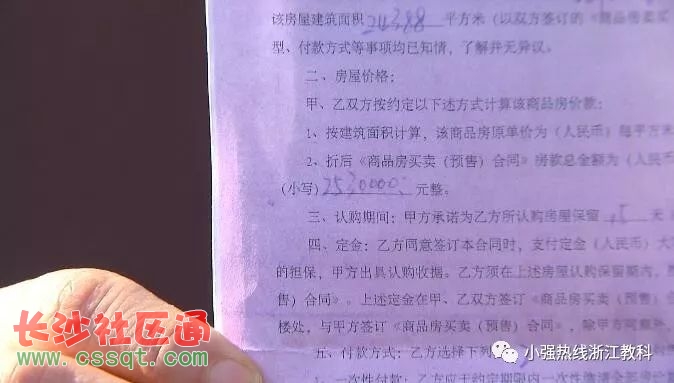 该房屋建筑面积243.88平方米（以双方签订的《商品房买卖
型、付款方式等事项均已知情，了解并无异议。
二、房屋价格：
甲、乙双方按约定以下述方式计算该商品房价款：
1、按建筑面积计算，该商品房原单价为（人民币）每平方米
2、折后《商品房买卖（预售）合同》房款总金额为（人民币）
（小写）2530000元整。
三、认购期间：甲方承诺为乙方所认购房屋保留 天
四、定金：乙方同意签订本合同时，支付定金（人民币）大
的担保，甲方出具认购收据。乙方须在上述房屋认购保留期内，
售）合同》。上述定金在甲、乙双方签订《商品房买卖（预售）
楼处，与甲方签订《商品房买卖（预售）合同》，除甲方同意外，
五、付款方式：乙方选择下列
1、一次性付款：乙方应于约定期限内一次性
长沙社区通
www.cssqt.com
小强热线浙江教科